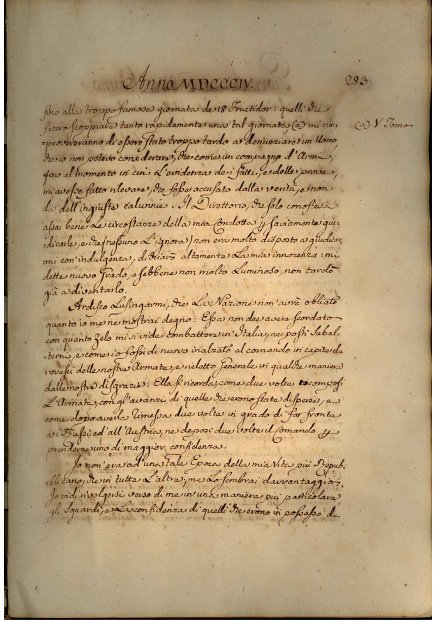 Anno MDCCCIV.
283
sino alla troppo famosa giornata de 18 Fructidor: quelli che
fecero scoppiare tanto rapidamente una tal giornata (a) mi rim-
proveravano d'essere stato troppo tardo a denunziare un Uomo,
che io non potevo considerare, che come un compagno d'Armi
fino al momento in cui l'evidenza dei fatti, e delle prove,
mi avesse fatto rilevare, che fosse accusato dalla verità, e non
da dell'ingiuste calunnie. Il Direttorio, che solo conosceva
assai bene le circostanze della mia Condotta
dicarle, e che nessuno l'ignora) non era molto disposto a giudicar-
mi con indulgenza, dichiarò altamente la mia innocenza: mi
dette nuovo Grado, e sebbene non molto luminoso, non tardò
già a diventarlo.
Ardisco Lusingarmi, che la Nazione non avrà obliato
quanto io me ne mostrai degno: Essa non deve aver scordato
con quanto zelo mi si vide combattere in Italia, ne posti Subal-
terni, e come io fossi di nuovo inalzato al comando in capo da
rovesci delle nostre Armate, e rieletto Generale in qualche maniera
dalle nostre disgrazie: Ella si ricorda, come due volte
l'Armate, con gl'avanzi di quelle che erano state disperse, e
come dopo averla rimessa due volte in grado di far fronta
a i Russi ed all'Austria, ne deposi due volte il Comando p
prenderne uno di maggior confidenza.
Io non ero ad una tale Epoca della mia Vita più Repub-
blicano, che in tutte l'altre, ma lo sembrai davantaggio:
Io vidi rivolgersi verso di me in una maniera più particolare
gli Sguardi, e la confidenza di quelli che erano in possesso de
(a) V Tomo